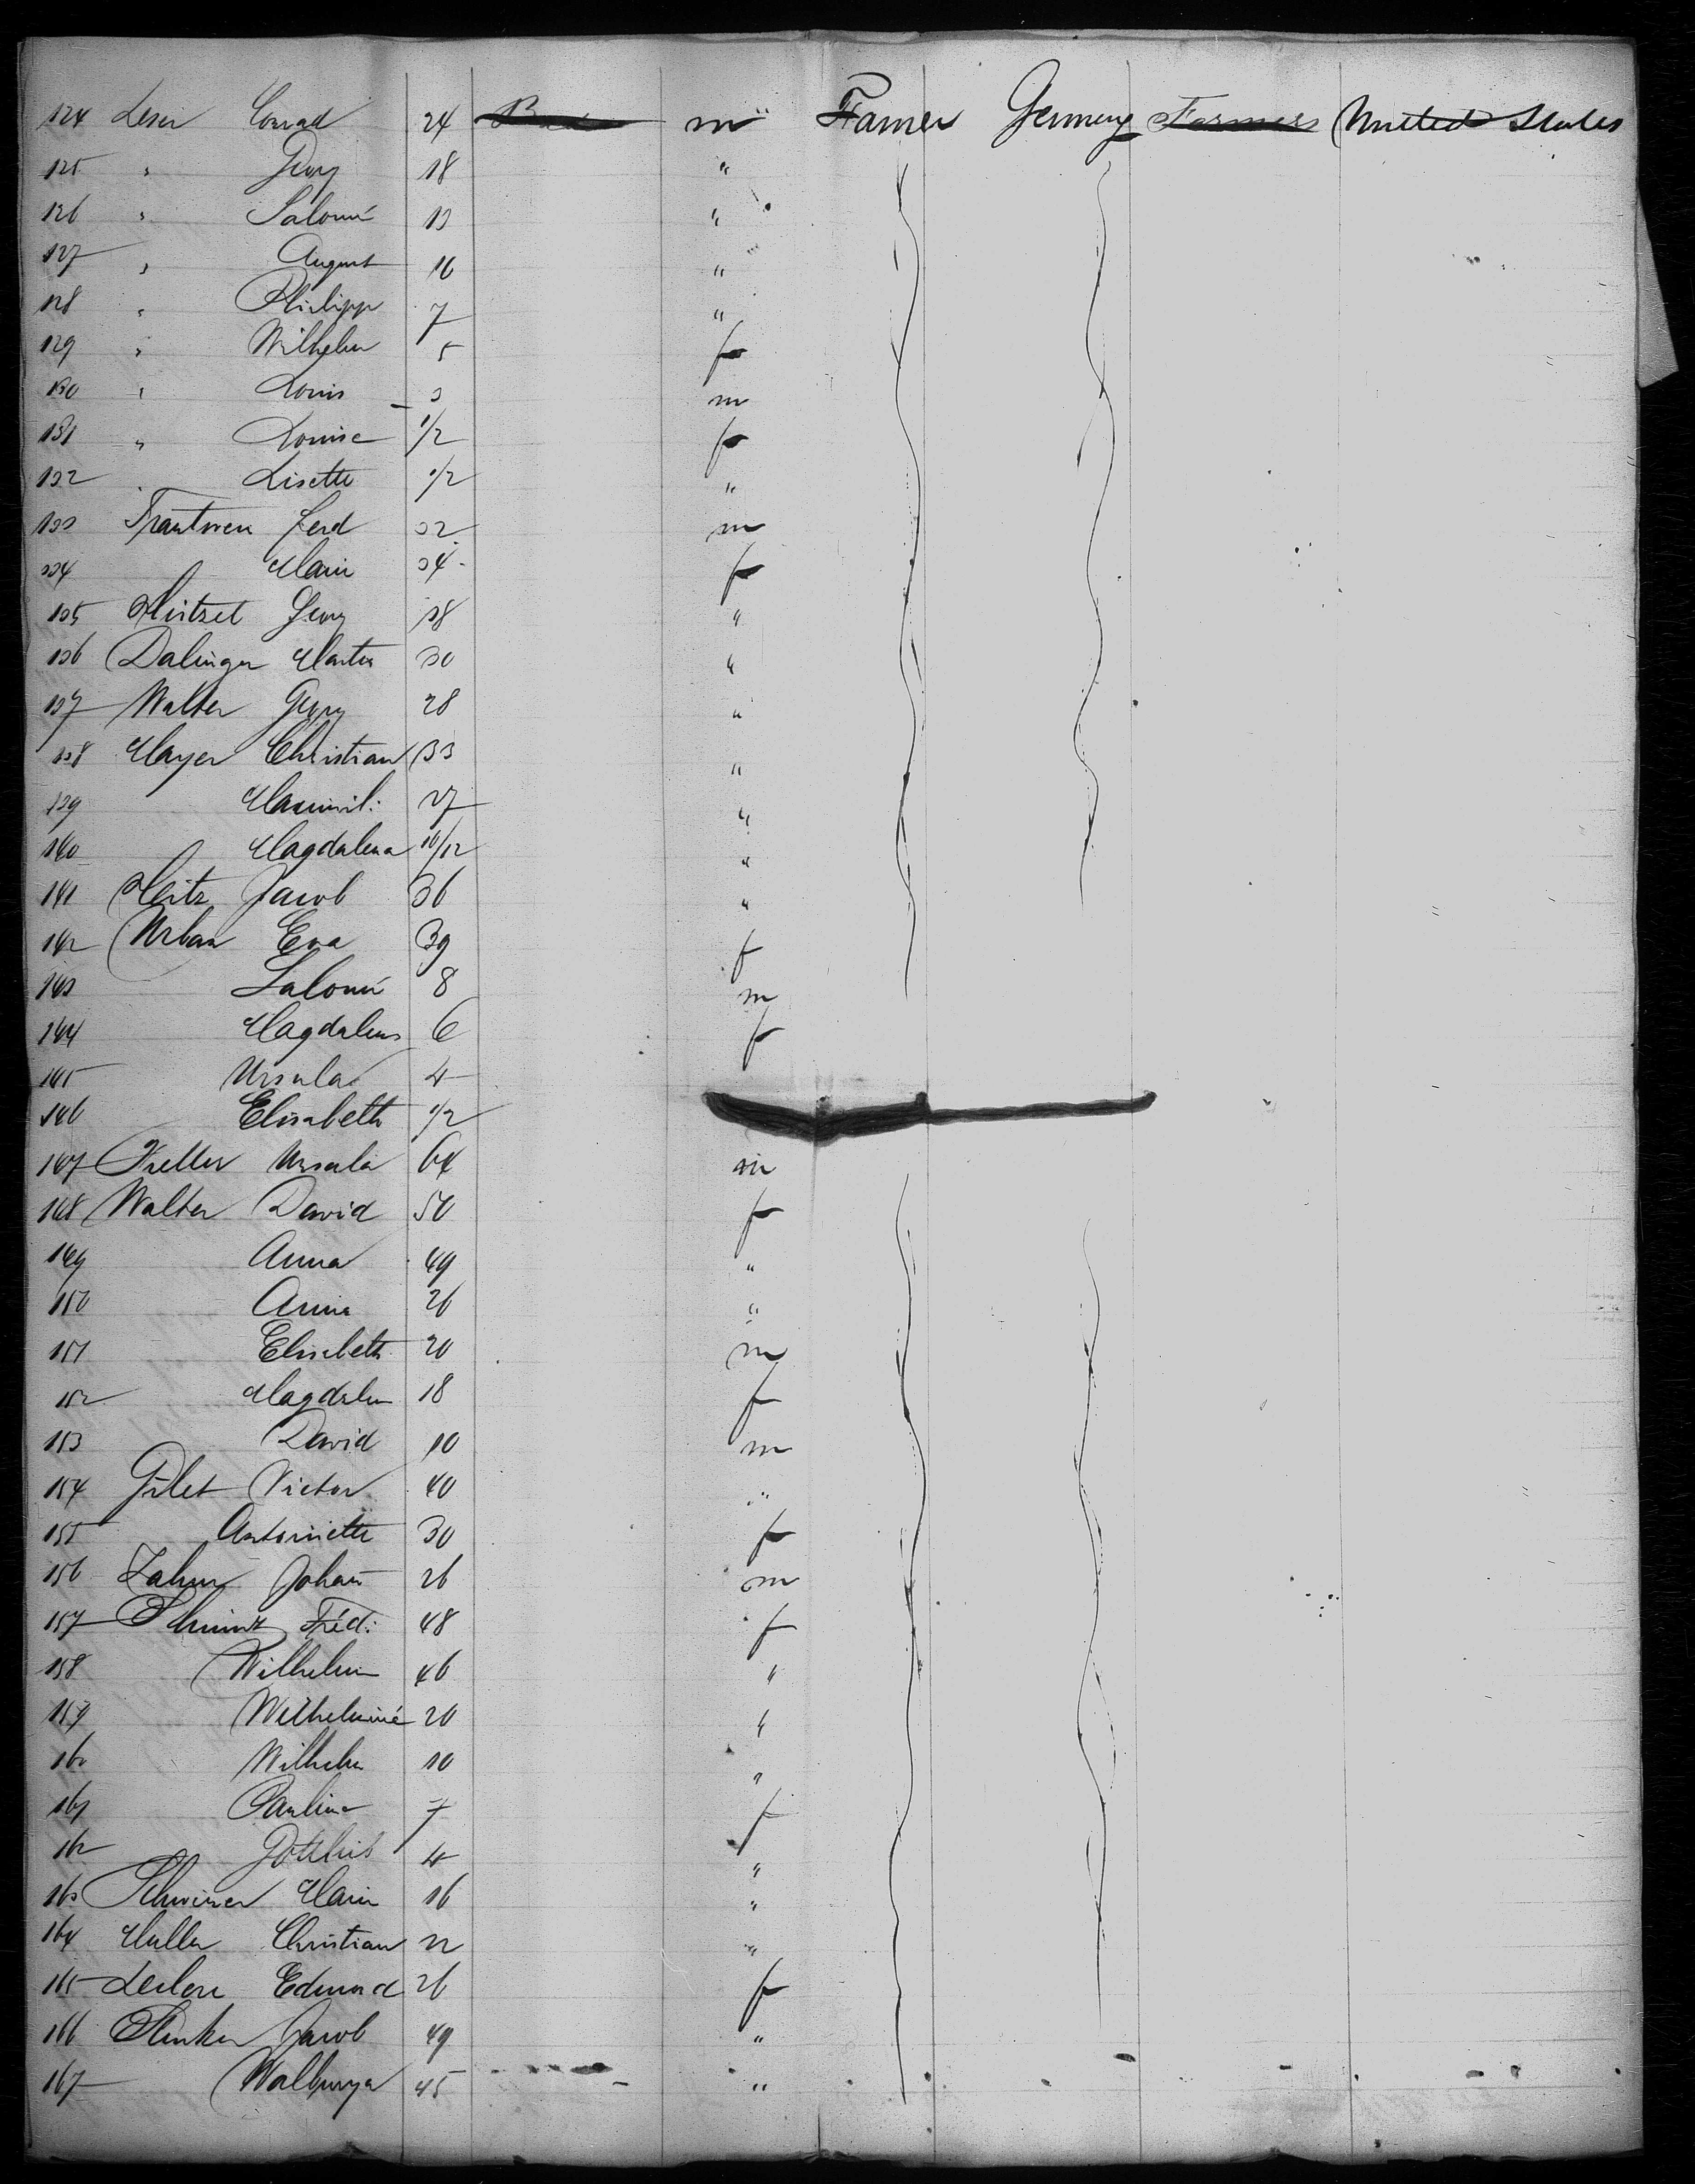 124 Leser Conrad 24 m Farmer Germany Farmers United States
125 " Georg 18 "
126 " Salomé 13 "
127 " August 10 "
128 " Philipp 7 "
129 " Wilhelm 5 f
130 " Louis 3 m
131 " Louise 1/2 f
132 " Lisette 1/2 "
133 Ferd 32 m
134 Marie 34 f
135 Georg 18 "
136 Dalinger Martin 30 "
137 Walter Georg 28 "
138 Mayer Christian 33 "
139 Maximil: 27 "
140 Magdalena 10/12 "
141 Heitz Jacob 36 "
142 Urban Eva 39 f
143 Salomé 8 m
144 Magdalena 6 f
145 Ursula 4
146 Elisabeth 1/2
147 Keller Ursula 64 m
148 Walter David 50 f
149 Anna 49 "
150 Anna 26 "
151 Elisabeth 20 m
152 Magdalen 18 f
153 David 10 m
154 Gilet Victor 40 "
155 Antoinette 30 f
156 Zahm Johañ 26 m
157 Fréd: 48 f
158 Wilhelm 46 "
159 Wilhelminé 20 "
160 Wilhelm 10 "
161 Pauline 7 f
162 Gottlieb 4 "
163 Marie 16 "
164 Muller Christian 22 "
165 Leclerc Edmond 26 f
166 Jacob 49 "
167 Walburga 45 "